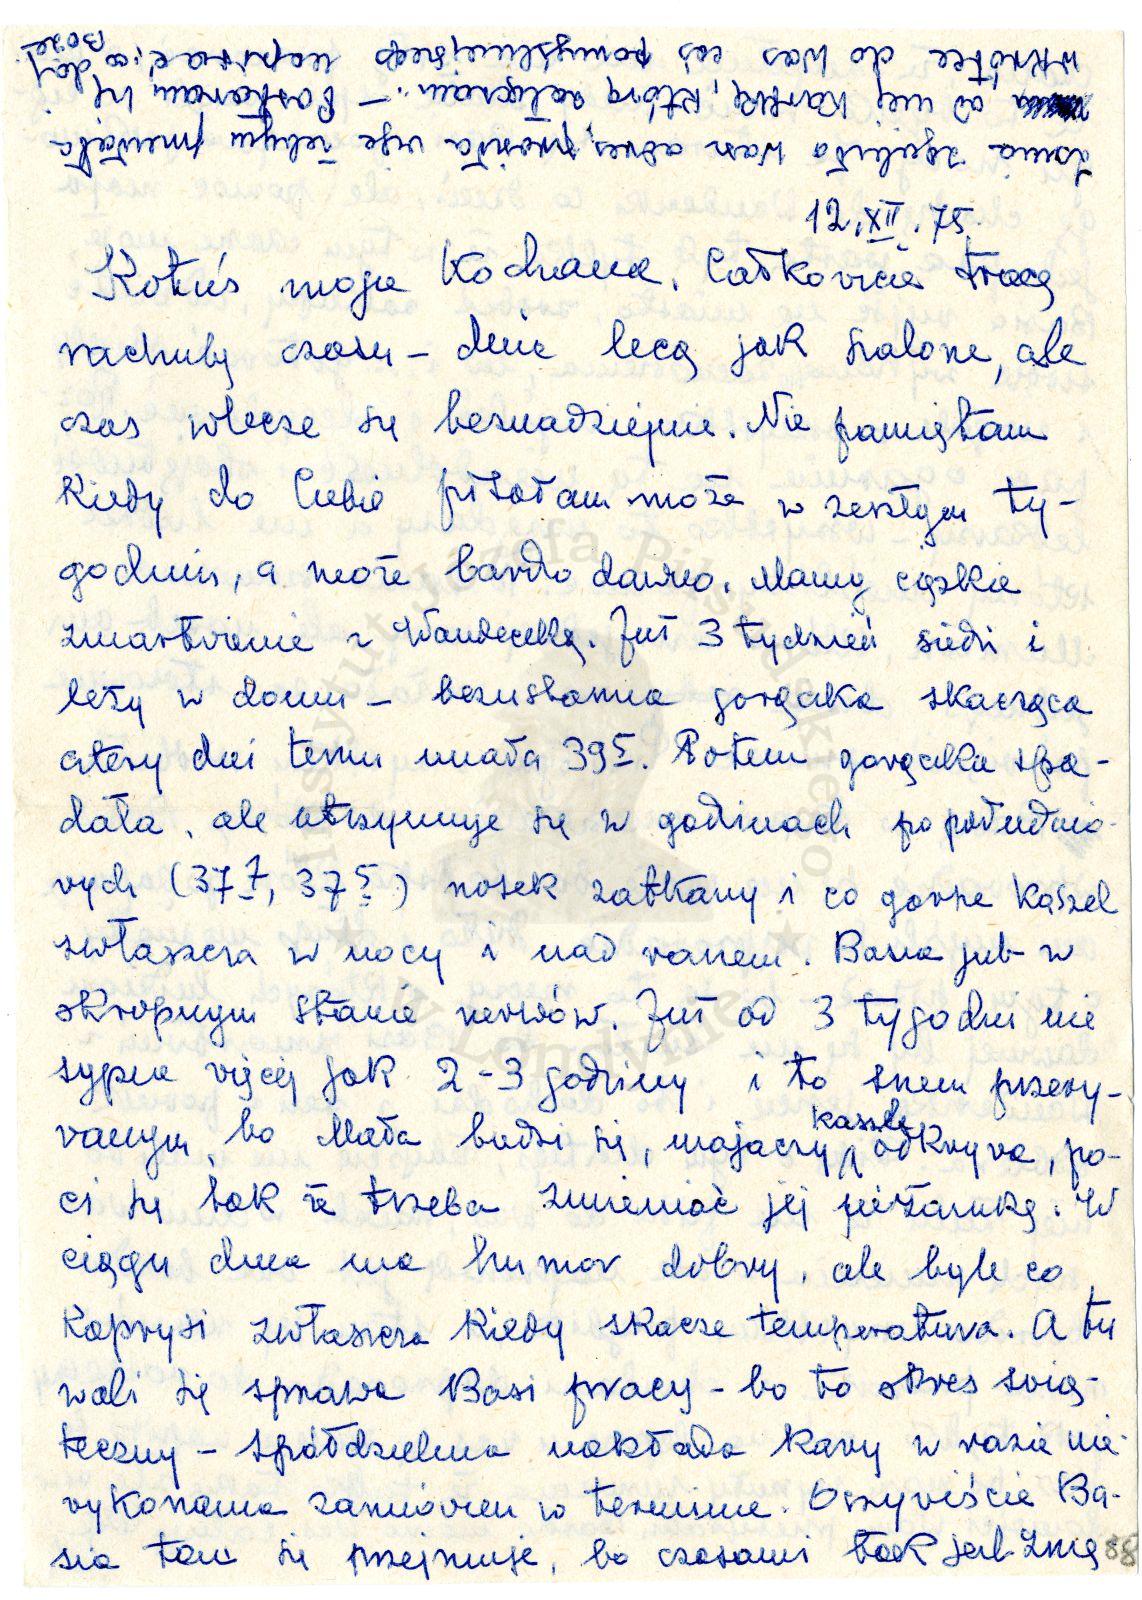 zgubiła Wasz adres, prosiła więc żebym przesłała
od niej kartkę, którą załączam. – Postaram się
wkrótce do Was coś pomyślniejszego napisać, co daj
Boże
12.XII.75.
Kotuś moja Kochana. Całkowicie tracę
rachubę czasu – dnie lecą jak szalone, ale
czas wlecze się beznadziejnie. Nie pamiętam
kiedy do Ciebie pisałam może w zeszłym ty-
godniu, a może bardzo dawno. Mamy ciężkie
zmartwienie z Wandeczką. Już 3 tydzień siedzi i
leży w domu – bezustanna gorączka skacząca
cztery dni temu miała 39⁵. Potem gorączka spa-
dała, ale utrzymuje się w godzinach popołudnio-
wych (37⁷, 37⁵) nosek zatkany i co gorsze kaszel
zwłaszcza w nocy i nad ranem. Basia już w
okropnym stanie nerwów. Już od 3 tygodni nie
sypia więcej jak 2-3 godziny i to snem przery-
wanym bo Mała budzi się, majaczy, kaszle, odkrywa, po-
ci się tak że trzeba zmieniać jej piżamkę. W
ciągu dnia ma humor dobry, ale byle co
kaprysi zwłaszcza kiedy skacze temperatura. A tu
wali się sprawa Basi pracy – bo to okres świą-
teczny – spółdzielnia nakłada kary w razie nie
wykonania zamówień w terminie. Oczywiście Ba-
sia tem się przejmuje, bo czasami tak jest zmę-
88
Instytut Józefa Piłsudskiego
w Londynie